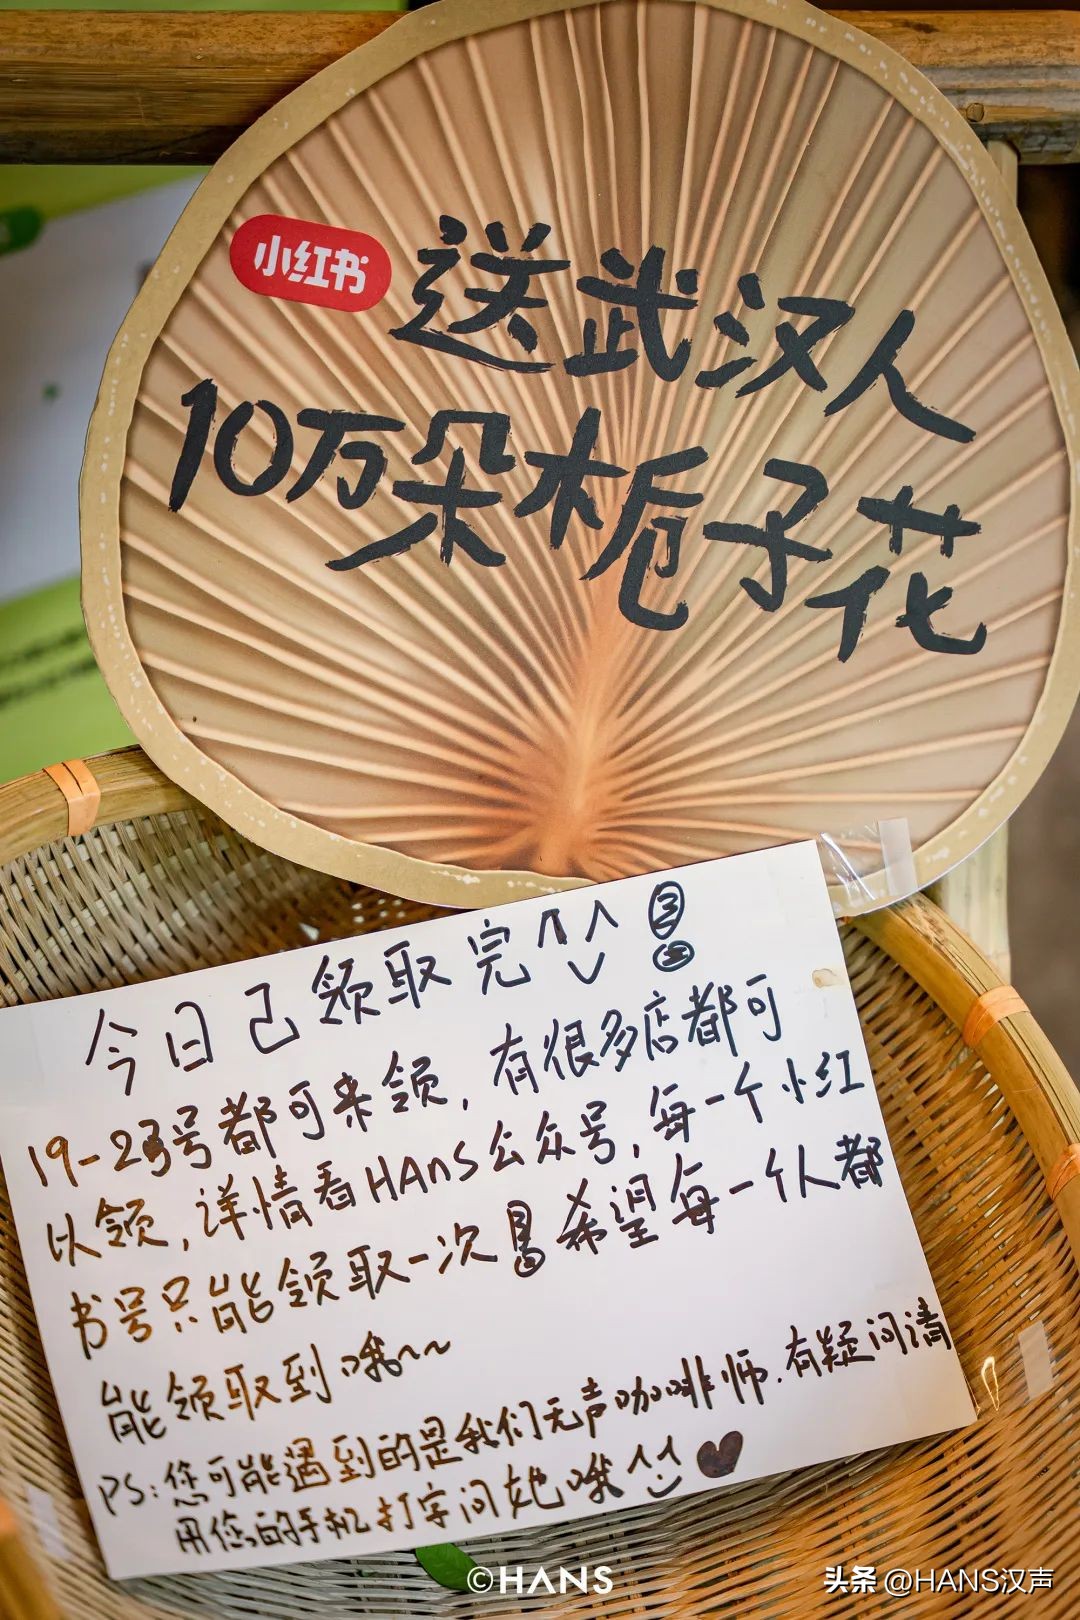 小红书
送武汉人
10万朵栀子花
今日已领取完
19-23号都可来领，有很多店都可
以领，详情看HAnS公众号，每一个小红
书号只能领取一次 希望每一个人都
能领取到哦~~
PS：您可能遇到的是我们无声咖啡师．有疑问请
用您的手机打字问她哦^_^
©HANS
头条 @HANS汉声